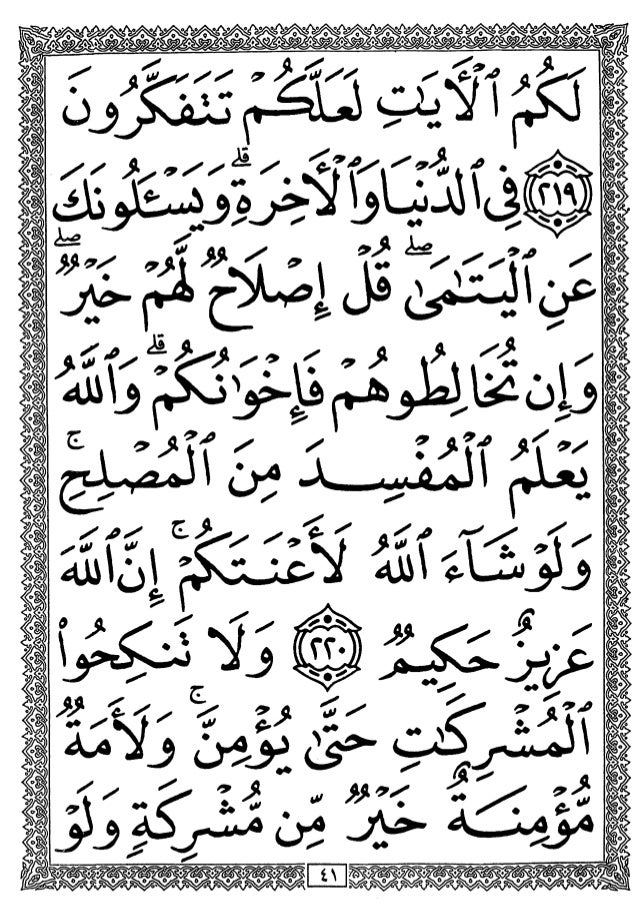 لَكُمُ ٱلْأَيَـٰتِ لَعَلَّكُمْ تَتَفَكَّرُونَ
﴿٢١٩﴾ فِى ٱلدُّنْيَا وَٱلْأَخِرَةِ ۗ وَيَسْـَٔلُونَكَ
عَنِ ٱلْيَتَـٰمَىٰ ۖ قُلْ إِصْلَاحٌ لَّهُمْ خَيْرٌ ۖ
وَإِن تُخَالِطُوهُمْ فَإِخْوَٰنُكُمْ ۗ وَٱللَّهُ
يَعْلَمُ ٱلْمُفْسِدَ مِنَ ٱلْمُصْلِحِ ۚ
وَلَوْ شَآءَ ٱللَّهُ لَأَعْنَتَكُمْ ۚ إِنَّ ٱللَّهَ
عَزِيزٌ حَكِيمٌ ﴿٢٢٠﴾ وَلَا تَنكِحُوا۟
ٱلْمُشْرِكَـٰتِ حَتَّىٰ يُؤْمِنَّ ۚ وَلَأَمَةٌ
مُّؤْمِنَةٌ خَيْرٌ مِّن مُّشْرِكَةٍ وَلَوْ
٤١